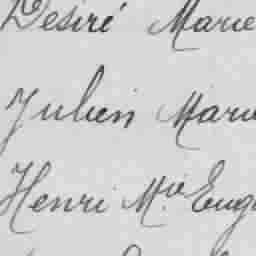 Désiré Marie
Julien Marie
Henri M.ie Eug